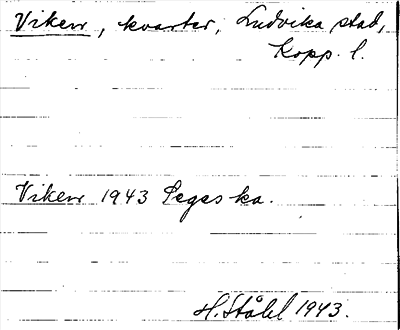 Viken, kvarter, Ludvika stad,
Kopp. l.
Viken 1943 Seges ka.
H. Ståhl 1943.